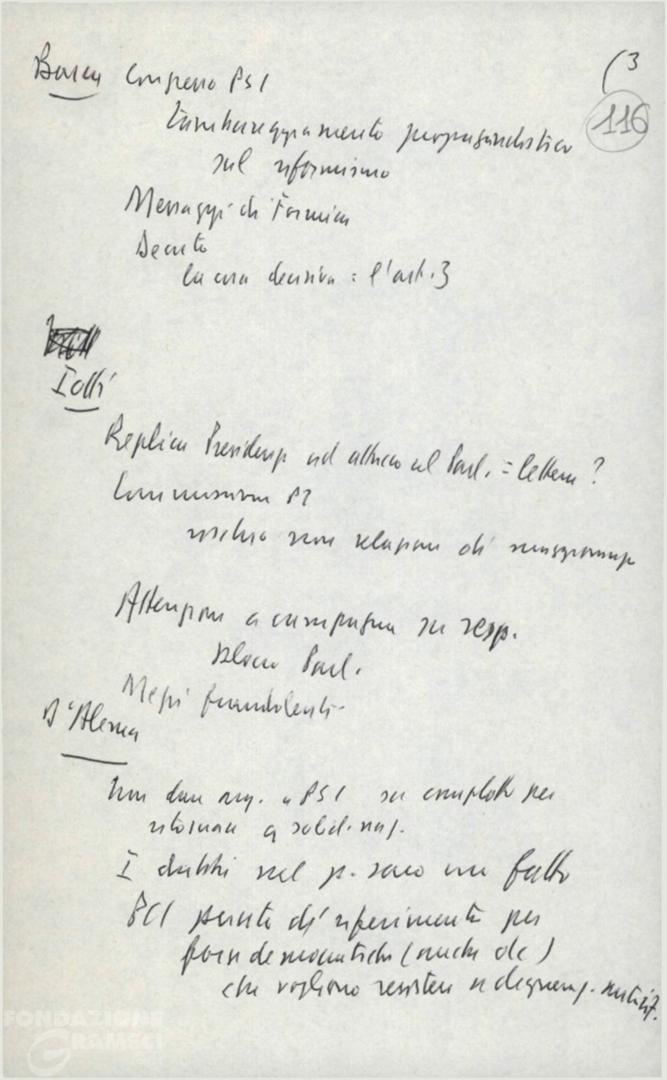 (3
116
Barca Congresso PSI
Cannoneggiamento propagandistico
sul riformismo
Messaggi di Formica
Decreto
la cosa decisiva = l'art. 3
Iotti
Replica Presidenza ad attacco al Parl. = lettera ?
Commissione P2
rischio non relazione di maggioranza
Attenzione a campagna su resp.
blocco Parl.
Mezzi fraudolenti
D'Alema
Non dare arg. a PSI su complotto per
ritornare a solid. naz.
I dubbi nel p. sono un fatto
PCI punto di riferimento per
forze democratiche (anche dc)
che vogliono resistere a degeneraz.
FONDAZIONE
GRAMSCI